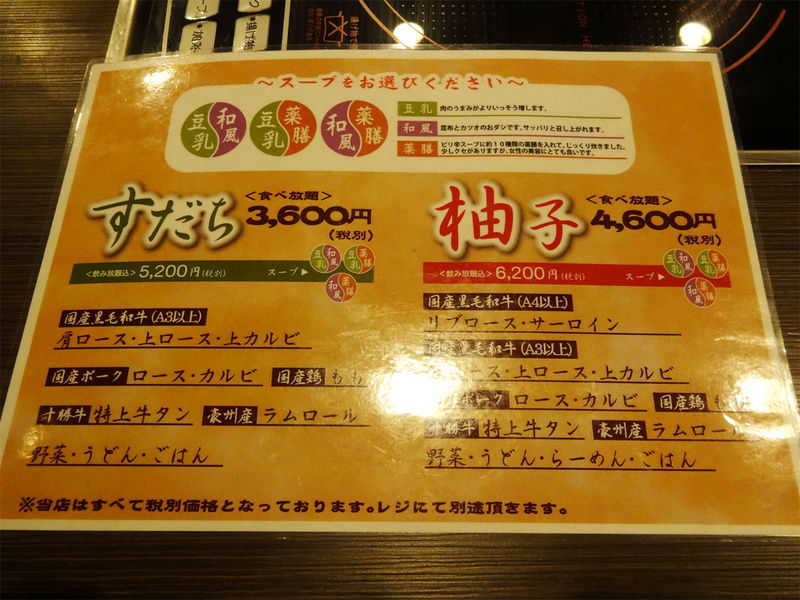 〜スープをお選びください〜
豆乳 和風
豆乳 薬膳
和風 薬膳
豆乳 肉のうまみがよりいっそう増します。
和風 昆布とカツオのおダシです。サッパリと召し上がれます。
薬膳 ピリ辛スープに約10種類の薬膳を入れて、じっくり炊きました。
少しクセがありますが、女性の美容にとても良いです。
すだち
<食べ放題>
3,600円
(税別)
<飲み放題込> 5,200円(税別) スープ▶
豆乳 和風
豆乳 薬膳
和風 薬膳
国産黒毛和牛(A3以上)
肩ロース・上ロース・上カルビ
国産ポーク ロース・カルビ 国産鶏 もも
十勝牛 特上牛タン 豪州産 ラムロール
野菜・うどん・ごはん
柚子
<食べ放題>
4,600円
(税別)
<飲み放題込> 6,200円(税別) スープ▶
豆乳 和風
豆乳 薬膳
和風 薬膳
国産黒毛和牛(A4以上)
リブロース・サーロイン
国産黒毛和牛(A3以上)
ロース・上ロース・上カルビ
ポーク ロース・カルビ 国産鶏 も
十勝牛 特上牛タン 豪州産 ラムロール
野菜・うどん・らーめん・ごはん
※当店はすべて税別価格となっております。レジにて別途頂きます。